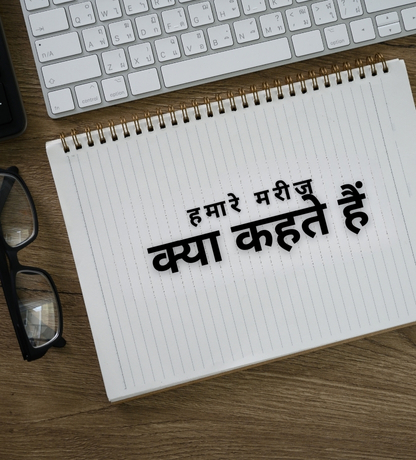 हमारे मरीज़
क्या कहते हैं